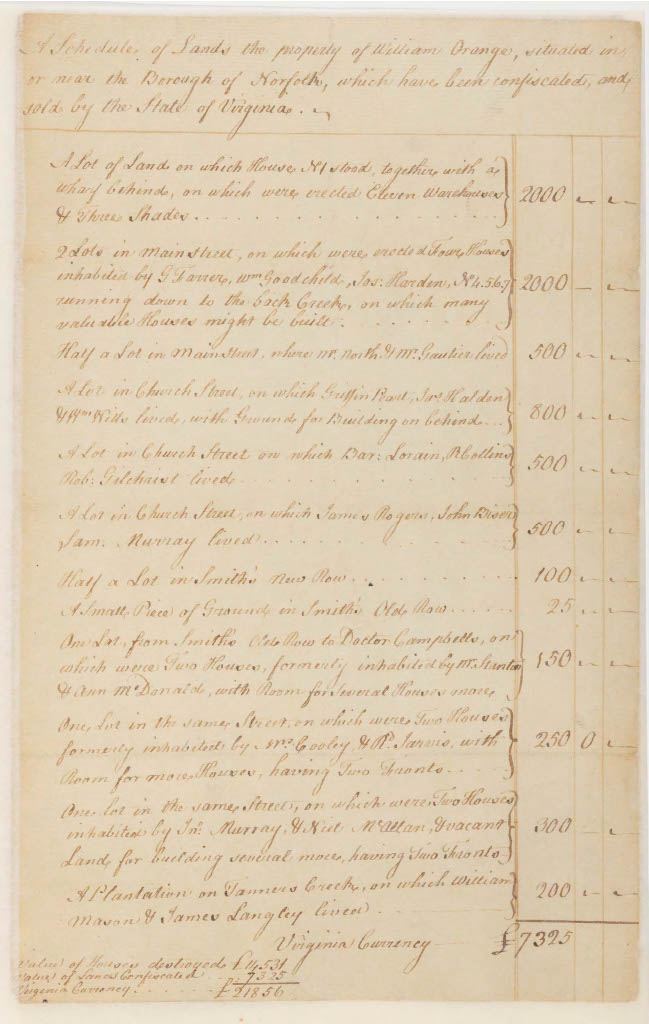 A Schedule of Lands the property of William Orange, situated in,
or near the Borough of Norfolk, which have been confiscated, and
sold by the State of Virginia.
A Lot of Land on which House No. 1 stood, together with a
wharf behind, on which were erected Eleven Warehouses
& Three Shades . . . 2000 " "
2 Lots in Main Street, on which were erected Four Houses
inhabited by G Farrer, Wm Goodchild, Jos: Harden, No 4.5.6.7
running down to the back Creek, on which many
valuable Houses might be built . . . 2000 " "
Half a Lot in Main Street, where Mr. North & Mr. Gautier lived 500 " "
A Lot in Church Street, on which Griffin Peart, Jno. Halden
& Wm Hills lived, with Ground for Building on behind . . . 800 " "
A Lot in Church Street on which Bar: Lorain, P. Collins
Rob: Gilchrist lived . . . 500 " "
A Lot in Church Street, on which James Rogers, John
Sam. Murray lived . . . 500 " "
Half a Lot in Smith's New Row . . . 100 " "
A Small Piece of Ground in Smith's Old Row . . . 25 " "
One Lot, from Smith's Old Row to Doctor Campbells, on
which were Two Houses, formerly inhabited by Mr. Stanton
& Ann McDonald, with Room for Several Houses more, 150 " "
One Lot in the same Street, on which were Two Houses
formerly inhabited by Mrs. Cooley & Rd. Jarvis, with
Room for more Houses, having Two Fronts . . . 250 0 "
One lot in the same Street, on which were Two Houses
inhabited by Jno. Murray, & Niel McAllan, & vacant
Land for building several more, having Two Fronts 300 " "
A Plantation on Tanners Creek, on which William
Mason & James Langley lived . . . 200 " "
Virginia Currency £7325
Value of Houses destroyed £14,531
Value of Lands Confiscated . . 7325
Virginia Currency . . . £21856